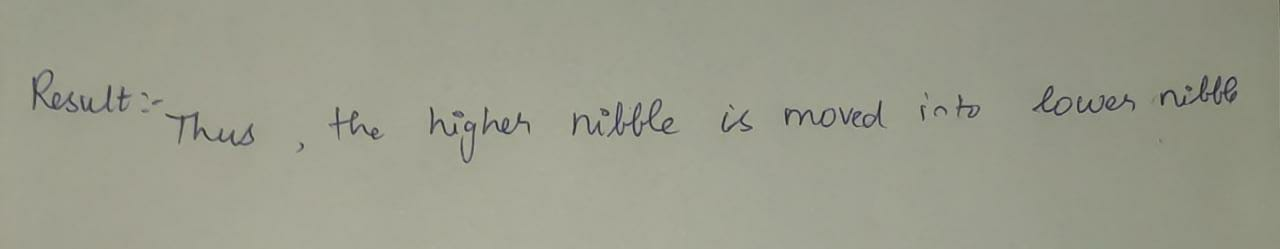 Result:- Thus, the higher nibble is moved into lower nibble